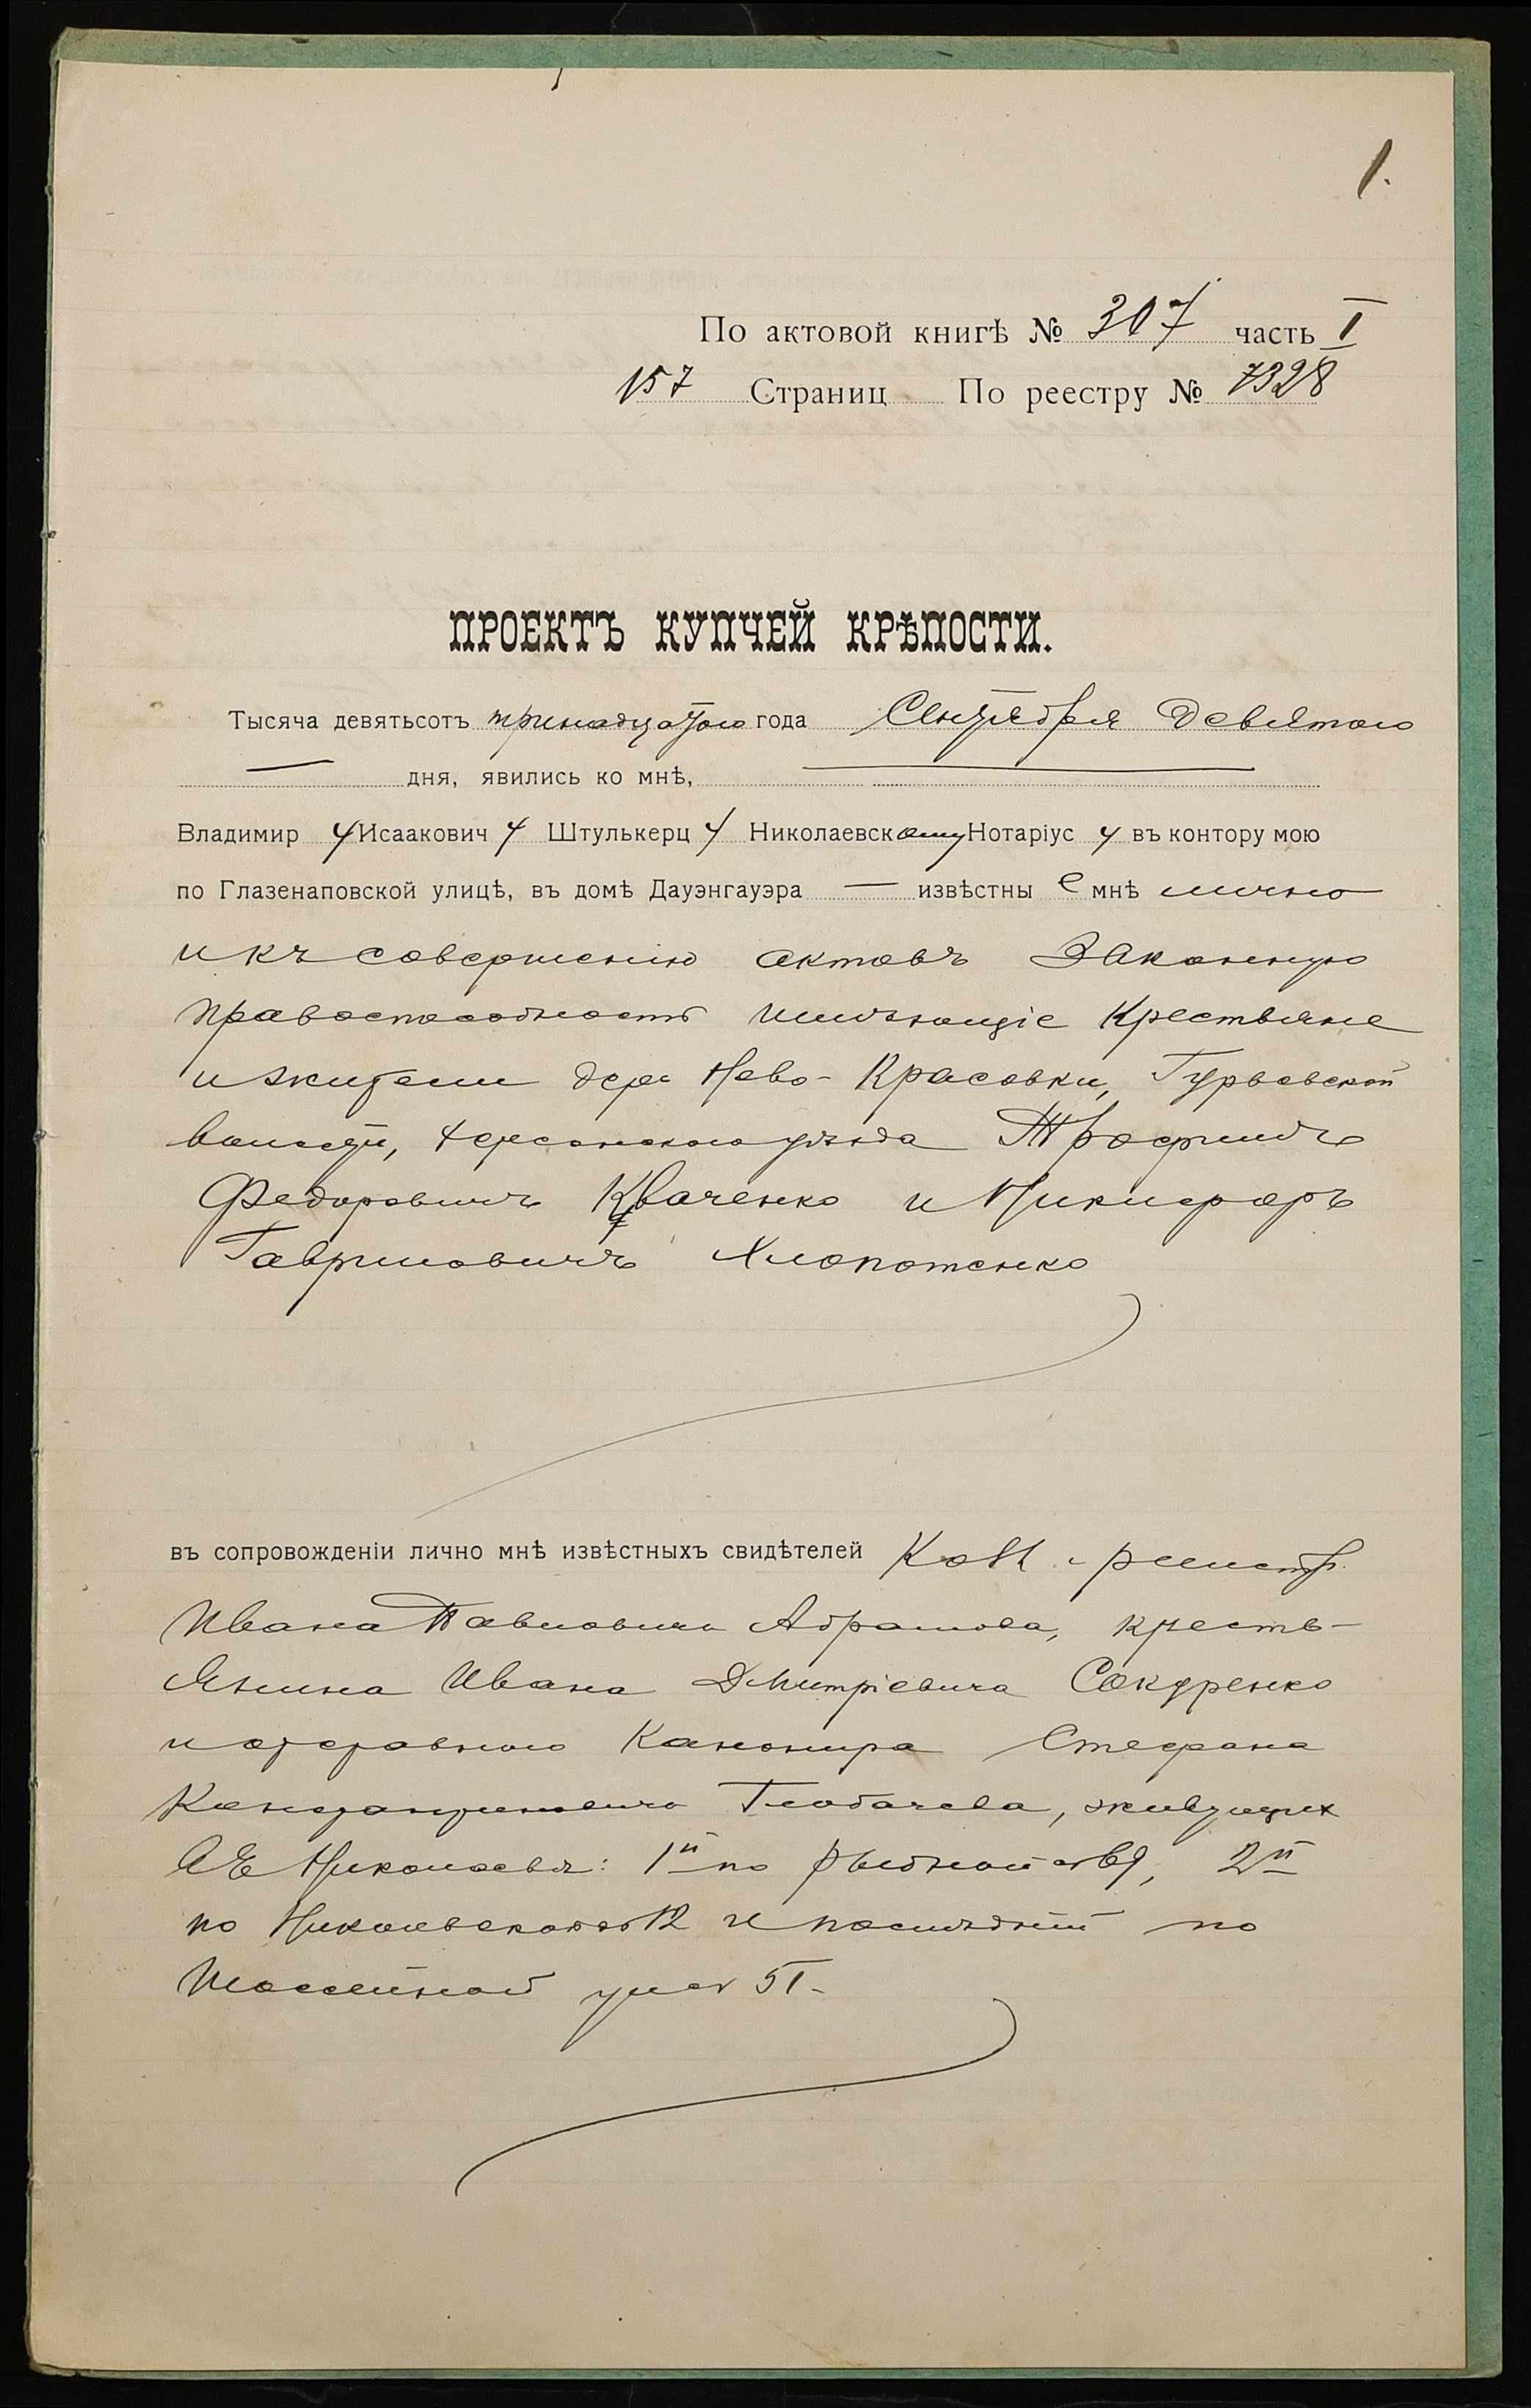 1.
По актовой книгѣ № 307 часть I
157 Страниц По реестру № 7328
ПРОЕКТЪ КУПЧЕЙ КРѢПОСТИ.
Тысяча девятьсотъ тринадцатого года Сентября девятого
дня, явились ко мнѣ,
Владимир у Исаакович у Штулькерц у Николаевскому Нотаріус у въ контору мою
по Глазенаповской улицѣ, въ домѣ Дауэнгауэра — извѣстные мнѣ лично
и къ совершенію актовъ законную
правоспособность имѣющіе Крестьяне
и жители дер. Ново-Красовки,
волости, Херсонскаго уѣзда Трофимъ
Федоровичъ Кваченко и Никифоръ
Гавриловичъ Хлопотенко
въ сопровожденіи лично мнѣ извѣстныхъ свидѣтелей Кол. регистр.
Ивана Павловича Абрамова, кресть-
янина Ивана Дмитріевича Сокуренко
и отставного Канонира Стефана
Константиновича живущих
въ Николаевѣ: 1й по Рыбной 2й
по Николаевской 12 и послѣдній по
51.